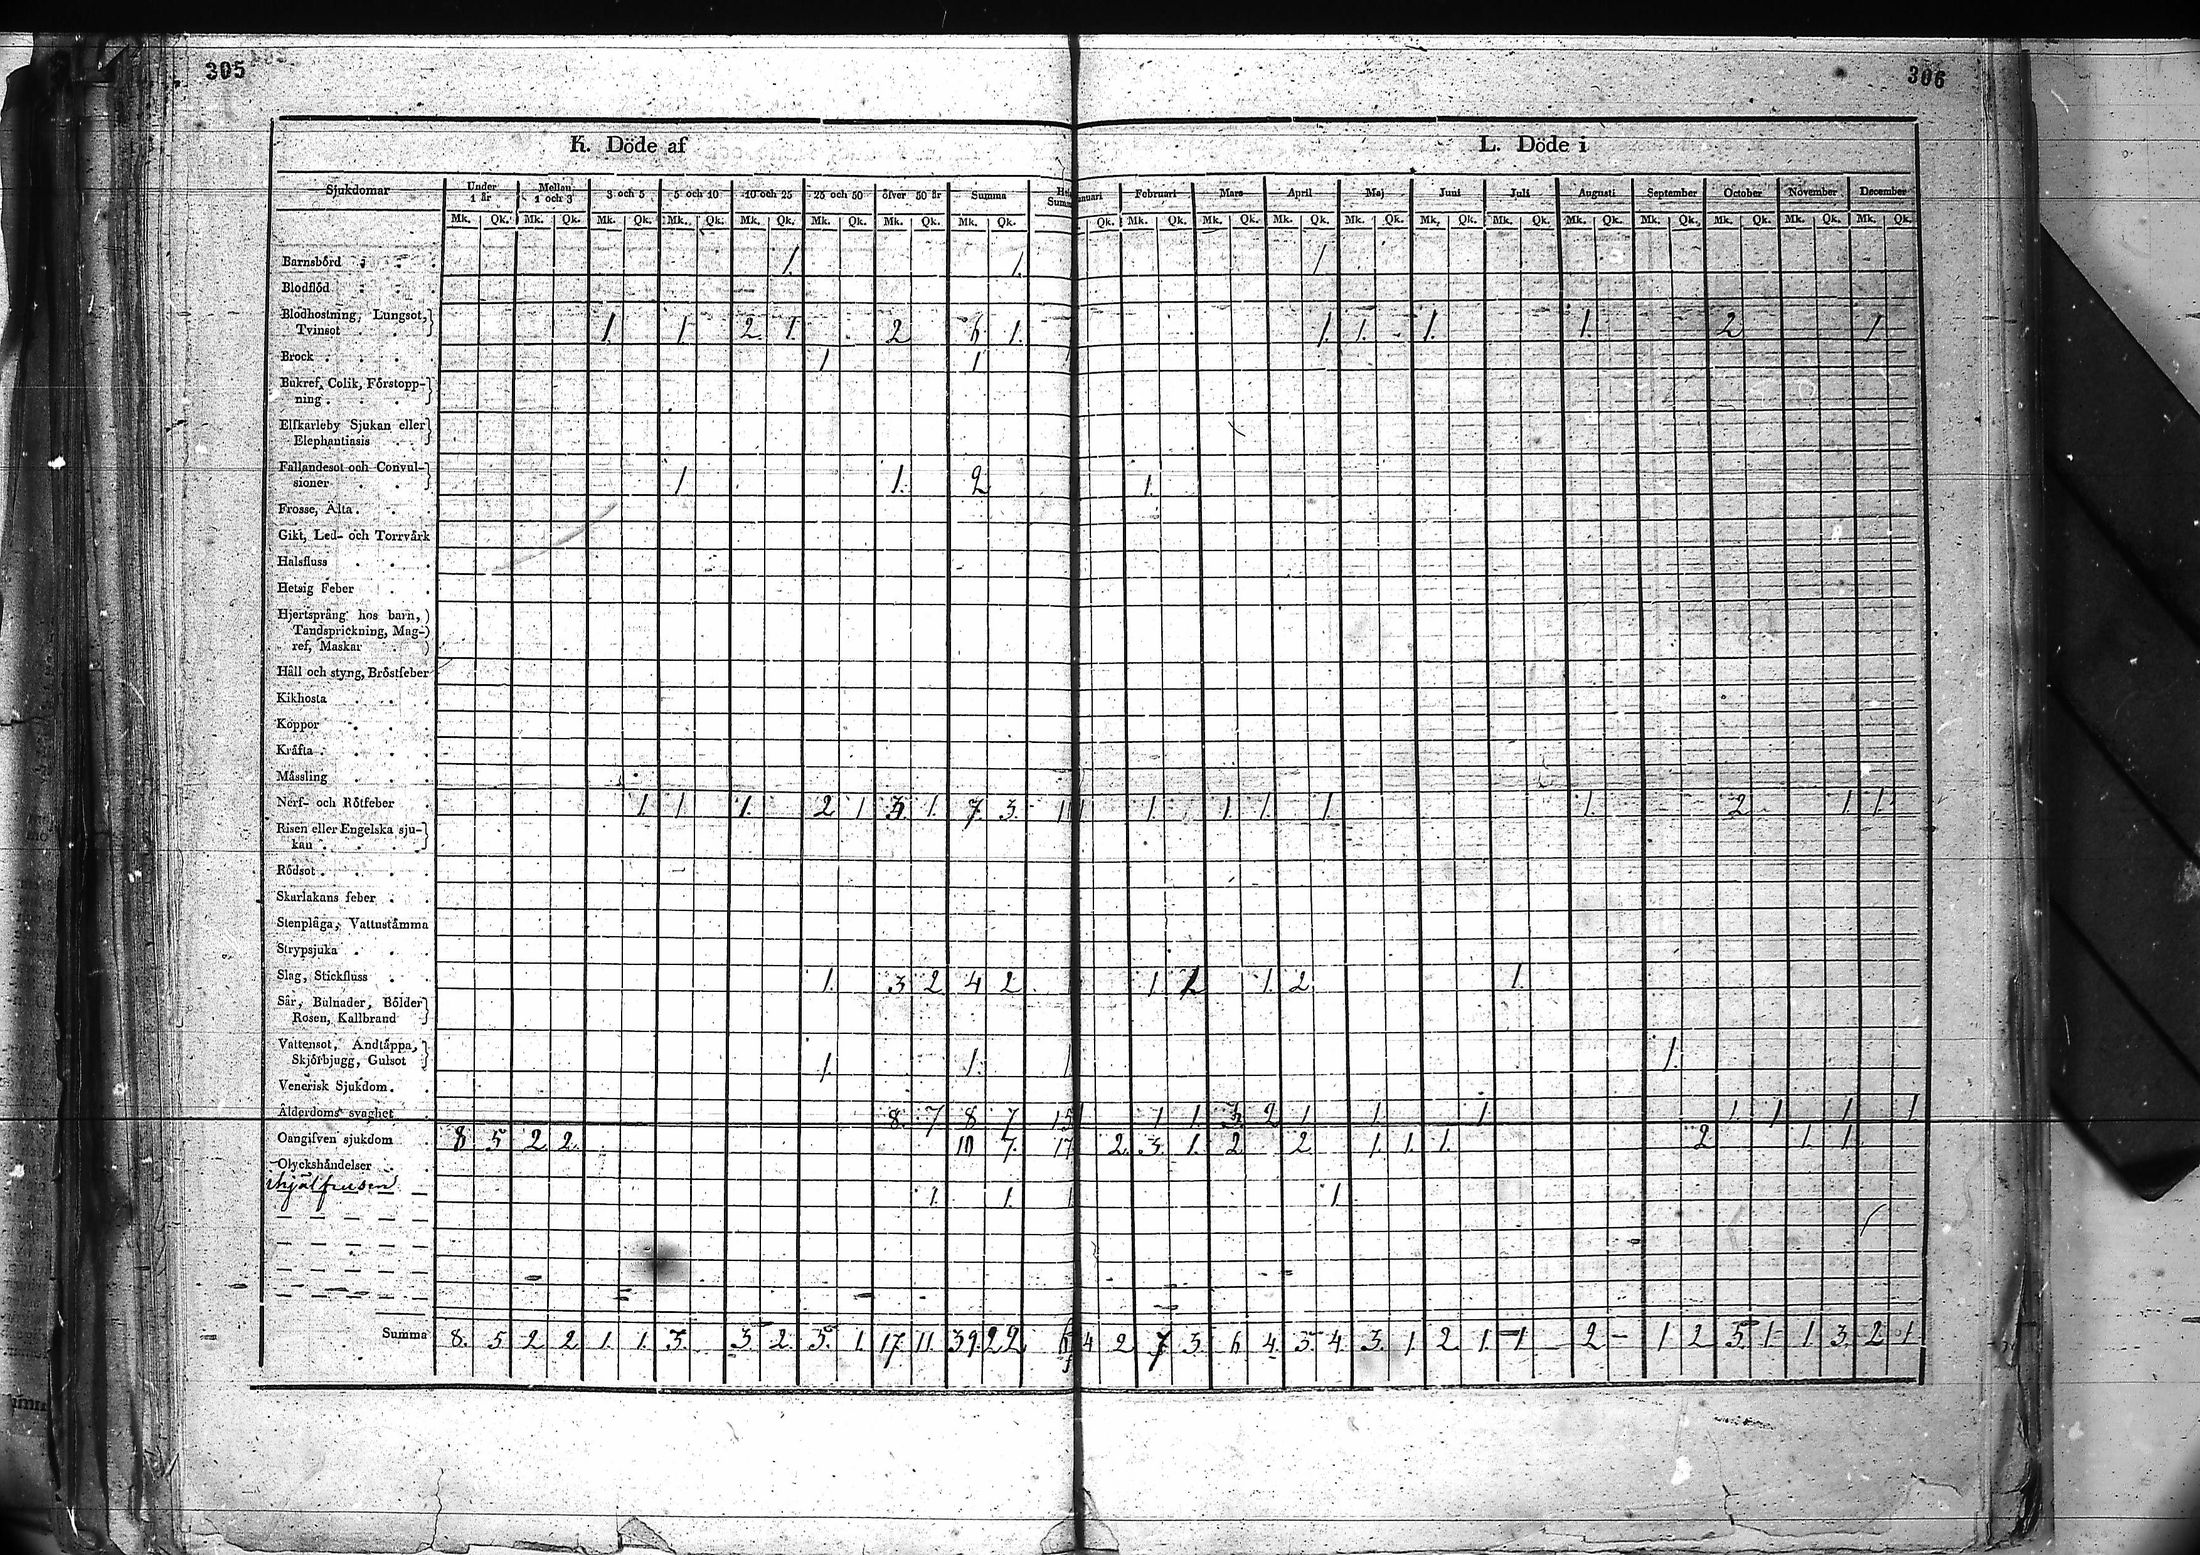 305
306
K. Döde af
L. Döde i
Sjukdomar Under 1 år Mellan 1 och 3 3 och 5 5 och 10 10 och 25 25 och 50 öfver 50 år Summa
Februari Mars April Maj Juni Juli Augusti September October November December
Mk. Qk. Mk. Qk. Mk. Qk. Mk. Qk. Mk. Qk. Mk. Qk. Mk. Qk. Mk. Qk.
Qk. Mk. Qk. Mk. Qk. Mk. Qk. Mk. Qk. Mk. Qk. Mk. Qk. Mk. Qk. Mk. Qk. Mk. Qk. Mk. Qk. Mk. Qk.
Barnsbörd 1. 1. 1
Blodflöd
Blodhostning, Lungsot,
Tvinsot 1. 1 2. 1. 2 6 1. 1. 1. 1. 1. 2 1.
Brock 1 1 1
Bukref, Colik, Förstopp-
ning
Elfkarleby Sjukan eller
Elephantiasis
Fallandesot och Convul-
sioner 1 1. 2 1.
Frosse, Älta
Gikt, Led- och Torrvärk
Halsfluss
Hetsig Feber
Hjertsprång hos barn,
Tandsprickning, Mag-
ref, Maskar
Håll och styng, Bröstfeber
Kikhosta
Koppor
Kräfta
Mässling
Nerf- och Rötfeber 1. 1 1. 2 1 3 1. 7. 3. 1. 1. 1. 1. 1. 2 1. 1.
Risen eller Engelska sju-
kan
Rödsot
Skarlakans feber
Stenplåga, Vattustämma
Strypsjuka
Slag, Stickfluss 1. 3 2 4 2 1 1. 2. 1.
Sår, Bulnader, Bölder
Rosen, Kallbrand
Vattensot, Andtäppa,
Skjörbjugg, Gulsot 1. 1. 1 1.
Venerisk Sjukdom
Ålderdoms svaghet 8. 7 8 7 15 1 1. 3 2 1 1. 1. 1. 1 1 1
Oangifven sjukdom 8 5 2 2. 10 7. 17 2. 3. 1. 2 2 1. 1. 1. 2 1. 1.
Olyckshändelser
ihjälfrusen 1. 1. 1 1.
Summa 8. 5 2 2 1. 1. 3. 3 2. 5. 1. 17. 11. 39. 22 4 2 7 3. 6 4. 5. 4. 3. 1. 2 1. 1 2 1 2 5. 1 1 3. 2 1